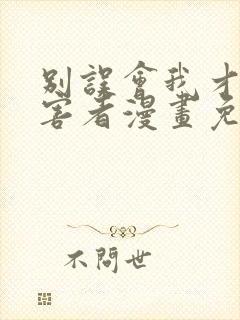 別誤會我才
害者漫畫免
不問世